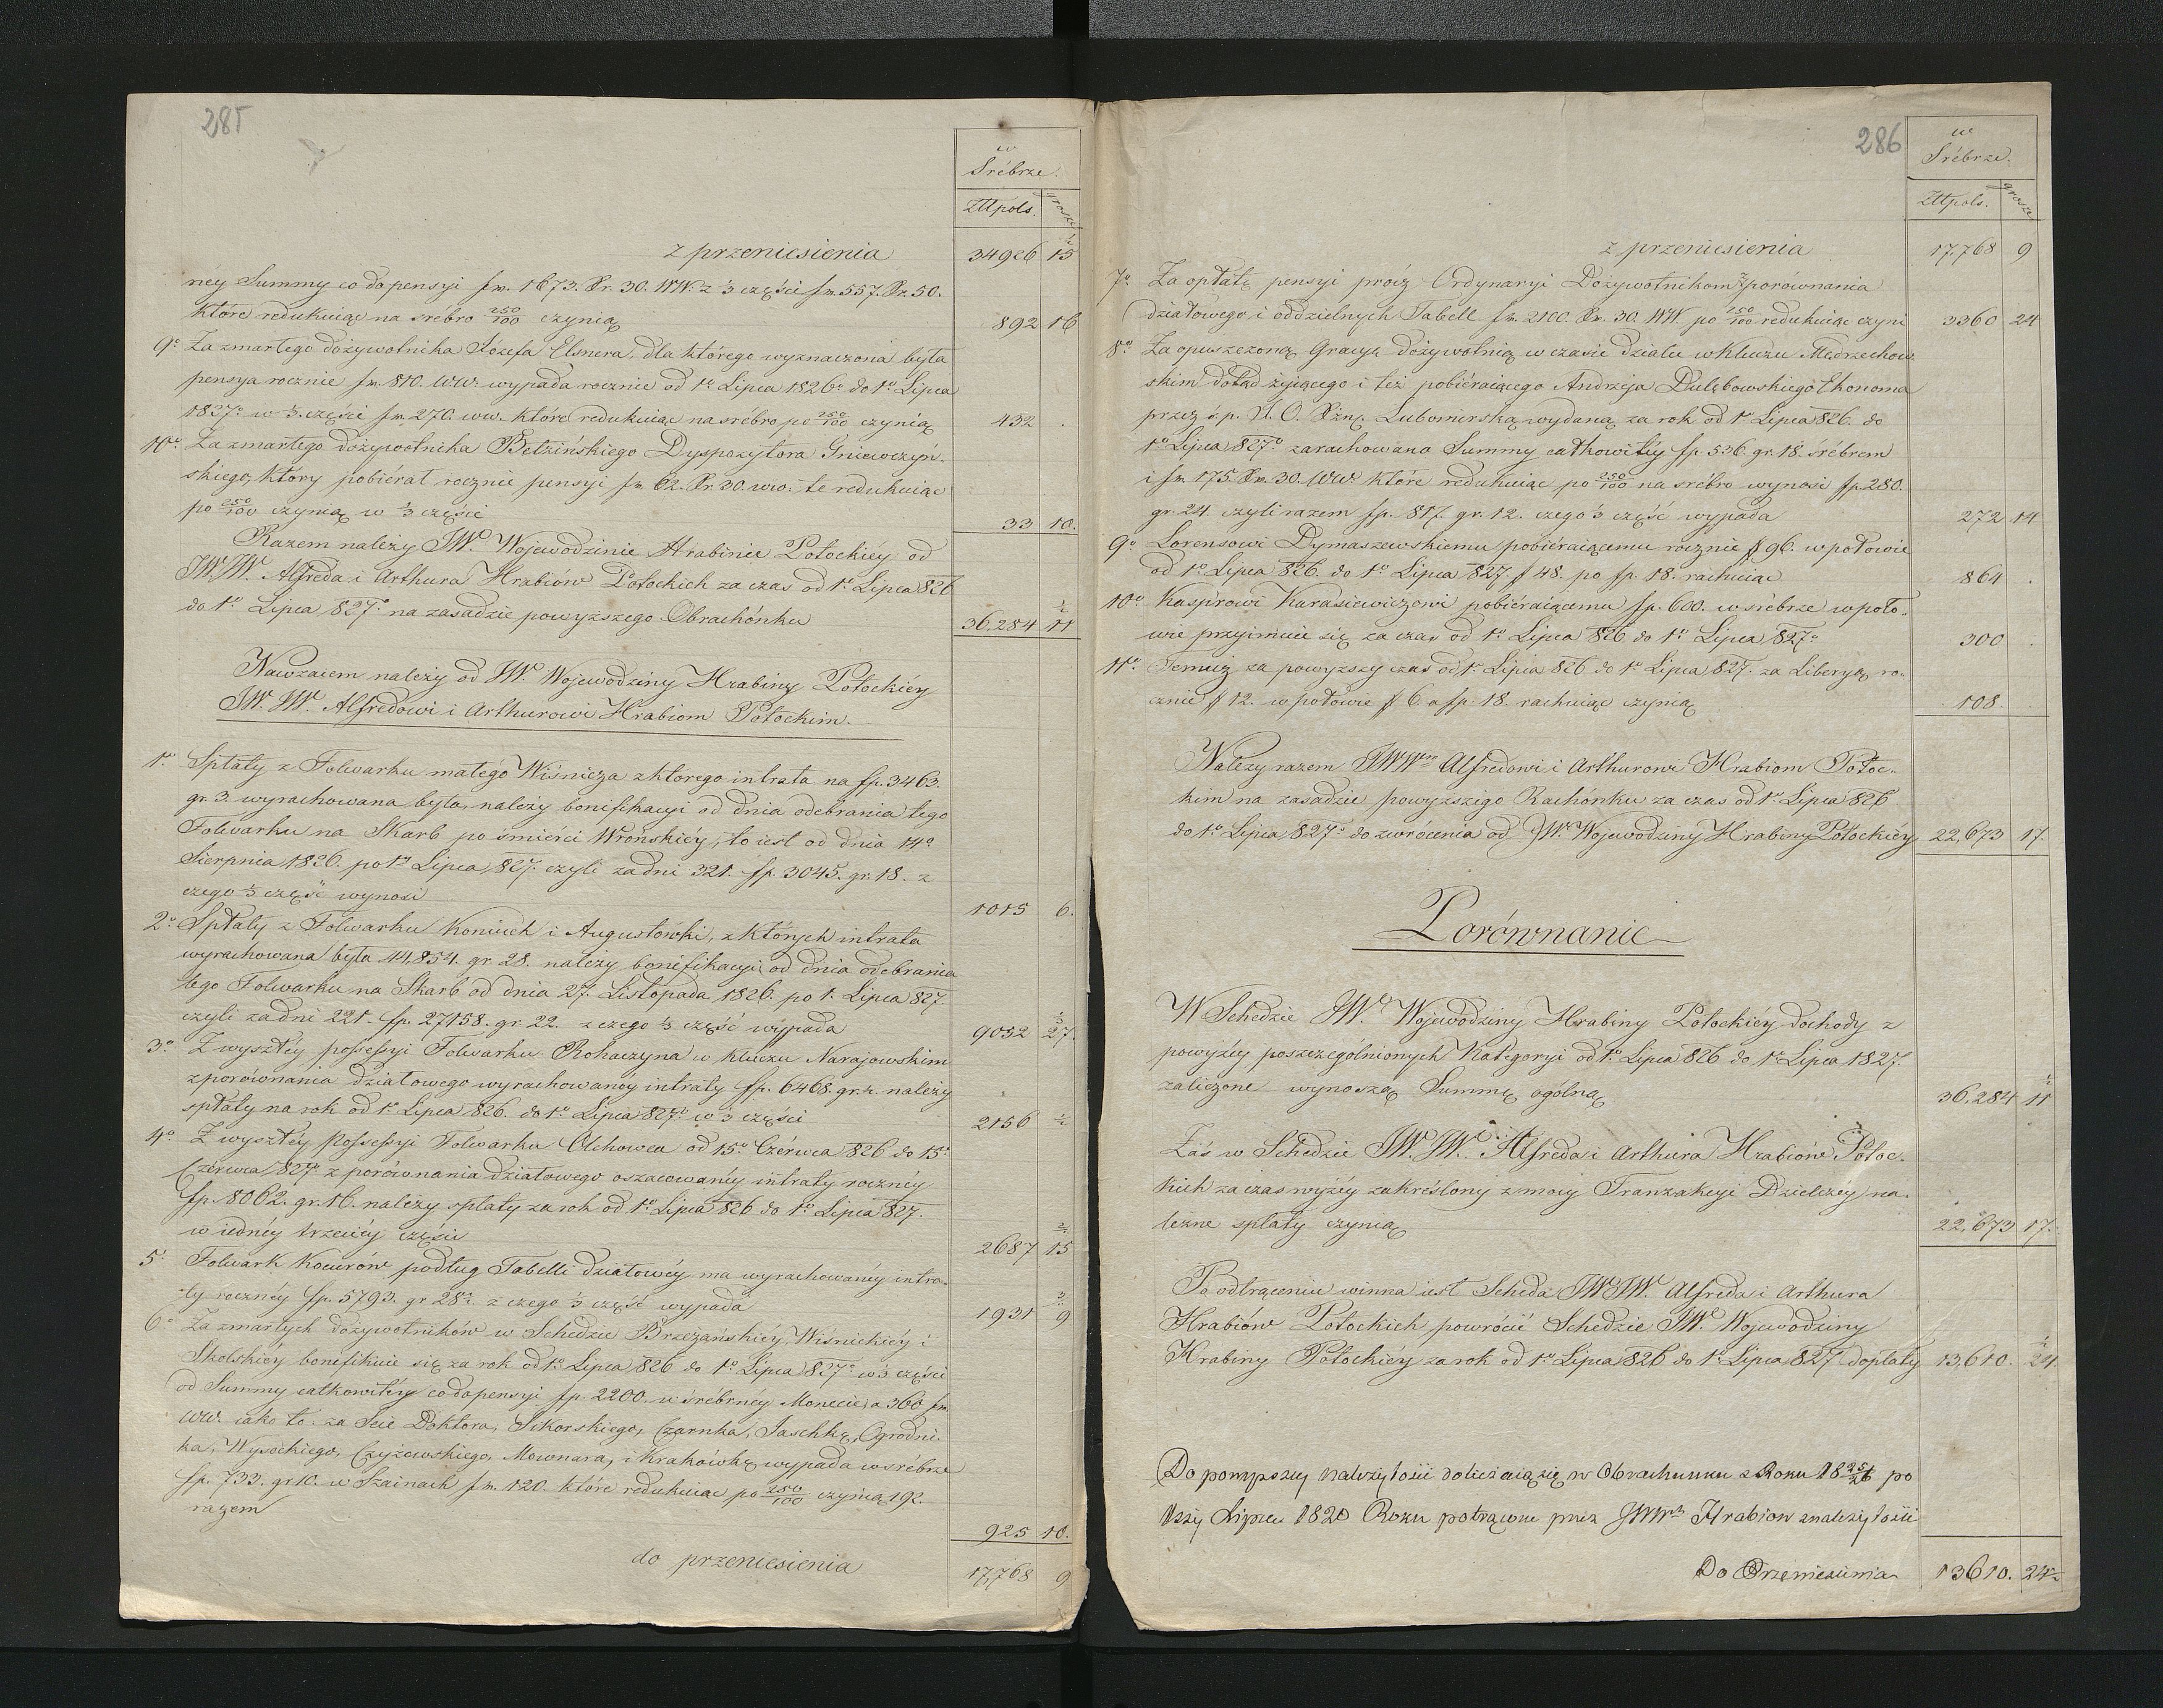 285
w
Srébrze.
Złłpols. grosze
z przeniesienia 34926 15 1/2
néy Summy co do pensyi fw. 1673. Xr. 30. WW. z 1/3 części fw. 557. Xr. 50.
które redukuiąc na srébro 250/100 czynią 892 16
9o Za zmartego dożywotnika Józefa Elsnera, dla którego wyznaczona była
pensya rocznie fw. 810. WW. wypada rocznie od 1o Lipca 1826o do 1o Lipca
1827o w 1/3 części fw. 270. ww. które redukuiąc na srébro po 250/100 czynią 432 .
10o Za zmartego dożywotnika Betzińskiego Dyspozytora Gniewczyn-
skiego, który pobiérał rocznie pensyi fw. 62. Xr. 30. ww. te redukuiąc
po 250/100 czynią w 1/3 części 33 10.
Razem należy JW. Wojewodzinie Hrabinie Potockiéy od
JW. JW. Alfreda i Arthura Hrabiów Potockich za czas od 1o Lipca 826
do 1o Lipca 827o na zasadzie powyższego Obrachónku 36.284 11 1/2
Nawzaiem należy od JW. Wojewodziny Hrabiny Potockiéy
JW. JW. Alfredowi i Arthurowi Hrabiom Potockim.
1o Spłaty z Folwarku małego Wiśnicza z którego intrata na fp. 3463.
gr. 3. wyrachowana była, należy bonifikacyi od dnia odebrania tego
Folwarku na Skarb po śmierci Wrońskiéy, to iest od dnia 14o
Sierpnia 1826. po 1o Lipca 827. czyli za dni 321. fp. 3045. gr. 18. z
czego 1/3 część wynosi 1015 6.
2o Spłaty z Folwarku Koniuch i Augustowki, z których intrata
wyrachowana była 44,854. gr. 28. należy bonifikacyi od dnia odebrania
tego Folwarku na Skarb od dnia 27. Listopada 1826. po 1. Lipca 827.
czyli za dni 221. fp. 27158. gr. 22. z czego 1/3 część wypada 9052 27.
3o Z wyszłéy possessyi Folwarku Rohaczyna w kluczu Narajowskim
z porównania działowego wyrachowanéy intraty fp. 6468. gr. 2 należy
spłaty na rok od 1o Lipca 826. do 1o Lipca 827o w 1/3 części 2156 1/2
4o Z wyszłéy Possessyi Folwarku Olchowca od 15o Czérwca 826 do 15o
Czérwca 827o z porównania działowego oszacowanéy intraty rocznéy
fp. 8062. gr. 16. należy spłaty za rok od 1o Lipca 826 do 1o Lipca 827.
w iednéy trzeciéy części 2687 15
5o Folwark Kocurów podług Tabelli działowéy ma wyrachowanéy intra-
ty rocznéy fp. 5793. gr 28 z czego 1/3 część wypada 1931 9
6o Za zmarłych dożywotników w Schedzie Brzeżańskiéy, Wiśnickiéy i
Skolskiéy bonifikuie się za rok od 1o Lipca 826 do 1o Lipca 827o w 1/3 części
od Summy całkowitéy co do pensyi fp. 2200. w śrébrnéy Monecie, a 360 fw.
WW. iako to: za Scie Doktora, Sikorskiego, Czarnka, Jaschkę, Ogrodni-
ka, Wysockiego, Czyżewskiego, Mownara, i Krakówkę, wypada w srébrze
fp. 733. gr 10. w Szainach fw. 120. które redukuiąc po 250/100 czynią 192.
razem 925 10.
do przeniesienia 17,768 9
286
w
Srébrze.
Złłpols. grosze
z przeniesienia 17.768 9
7o Za opłatę pensyi prócz Ordynaryi Dożywotnikom z porównania
działowego i oddzielnych Tabell fw. 2100. Xr. 30. WW. po 250/100 redukuiąc czyni 3360 24
8o Za opuszczoną Gracyą dożywotnią w czasie działu w Kluczu Mędrzechow-
skim dotąd żyiącego i też pobiéraiącego Andrzeja Dulębowskiego Ekonoma
przez ś.p. J. O. Xżnę Lubomirską wydaną za rok od 1o Lipca 826. do
1o Lipca 827o zarachowano Summy całkowitéy fp 536. gr. 18. śrébrem
i fw. 175. Xr. 30. WW. które redukuiąc po 250/100 na srébro wynosi fp. 280.
gr. 24. czyli razem fp. 817. gr. 12. czego 1/3 część wypada 272 14
9o Lorensowi Dymaszewskiemu pobiéraiącemu rocznie # 96. w połowie
od 1o Lipca 826. do 1o Lipca 827 # 48. po fp. 18. rachuiąc 864 .
10o Kasprowi Karasiewiczowi pobiéraiącemu fp. 600. w srébrze w poło-
wie przyimuie się za czas od 1o Lipca 826 do 1o Lipca 827o 300 .
11o Temuż za powyższy czas od 1o Lipca 826 do 1o Lipca 827. za Liberyą ro-
cznie # 12. w połowie # 6. a fp. 18. rachuiąc czynią 108.
Należy razem JWWm Alfredowi i Arthurowi Hrabiom Potoc-
kim na zasadzie powyższego Rachónku za czas od 1o Lipca 826
do 1o Lipca 827o do zwrócenia od JW. Wojewodziny Hrabiny Potockiéy 22,673 17.
Porównanie
W Schedzie JW. Wojewodziny Hrabiny Potockiéy dochody z
powyżéy poszczególnionych Kategoryi od 1o Lipca 826 do 1o Lipca 1827.
zaliczone wynoszą Summę ogólną 36,284 11 1/2
Zaś w Schedzie JW. JW. Alfreda i Arthura Hrabiów Potoc-
kich za czas wyżéy zakréślony z mocy Tranzakcyi Dzielczéy na-
leżne spłaty czynią 22,673 17.
Po odtrąceniu winna iest Scheda JW JW. Alfreda i Arthura
Hrabiów Potockich powrócić Schedzie JW. Wojewodziny
Hrabiny Potockiéy za rok od 1o Lipca 826 do 1o Lipca 827 dopłaty 13,610. 24 1/2
Do powyższy należytości doliczaią się w Obrachunku z Roku 1825/26 po
1szy Lipca 1820 Roku potrącone przez JWWch Hrabiow z należytości
Do Przeniesienia 13610. 24 1/2